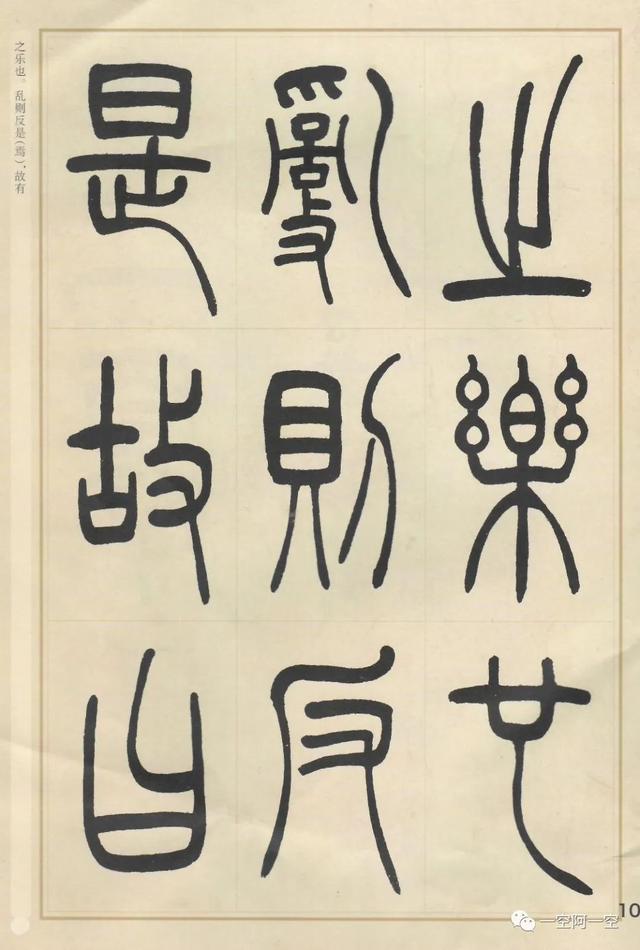 之樂也
亂則反
是故
之乐也。乱则反是(焉),故有
10
一空阿一空